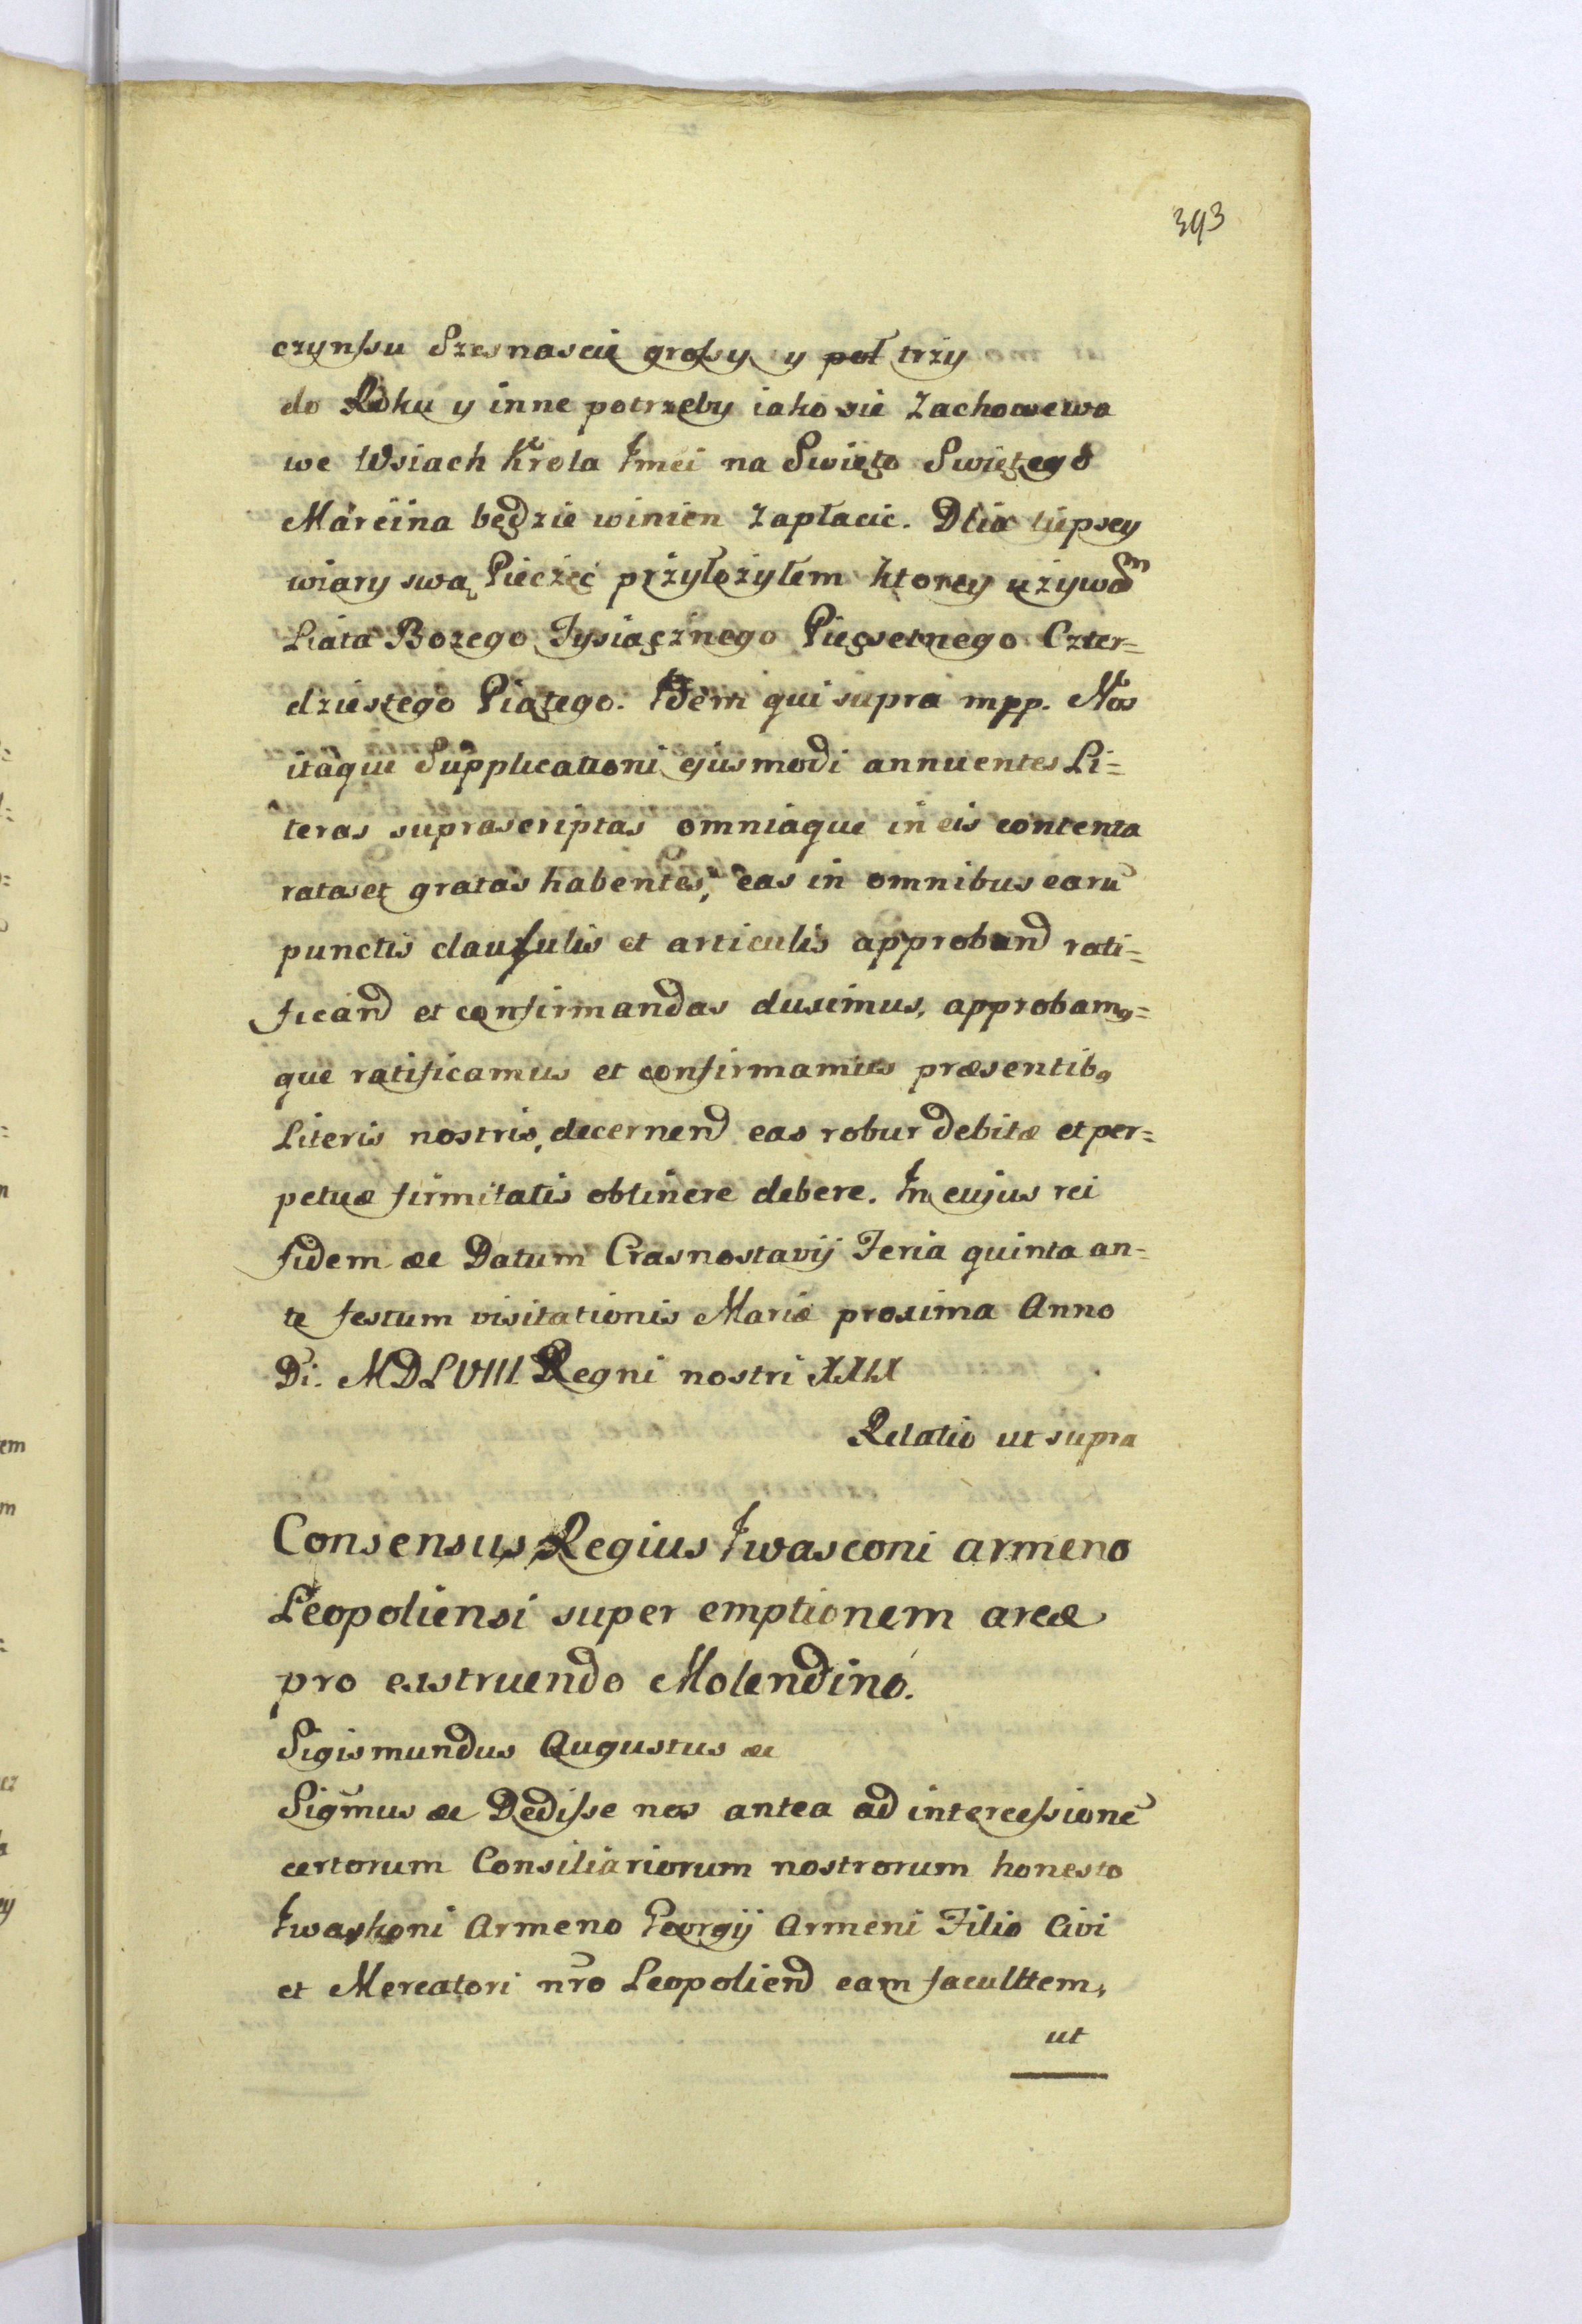 393
czynssu Szesnascie grossy y poł trzy
do Roku y inne potrzeby iako sie Zachowewa
we Wsiach Krola Jmci na Swięto Swiętego
Marcina będzie winien Zapłacic. Dlia liepsey
wiary swą Pieczęć przyłozyłem ktorey uzywam
Liata Bozego Tysiącznego Piecsetnego Czter=
dziestego Piątego. Idem qui supra mpp. Nos
itaque Supplicationi ejusmodi annuentes Li=
teras suprascriptas omniaque in eis contenta
ratas et gratas habentes, eas in omnibus earu̅
punctis clausulis et articulis approband rati=
ficand et confirmandas duximus, approbamq=
que ratificamus et confirmamus præsentibq
Literis nostris, decernend eas robur debitæ et per=
petuæ firmitatis obtinere debere. In cujus rei
fidem &c Datum Crasnostavij Feria quinta an=
te festum visitationis Mariæ proxima Anno
Di. MDLVIII Regni nostri XXIX
Relatio ut supra
Consensus Regius Iwasconi armeno
Leopoliensi super emptionem areæ
pro exstruendo Molendino.
Sigismundus Augustus &c
Sigm̅us &c Dedisse nos antea ad intercessione̅
certorum Consiliariorum nostrorum honesto
Iwaskoni Armeno Georgij Armeni Filio Civi
et Mercatori nr̅o Leopoliend eam faculttem,
ut